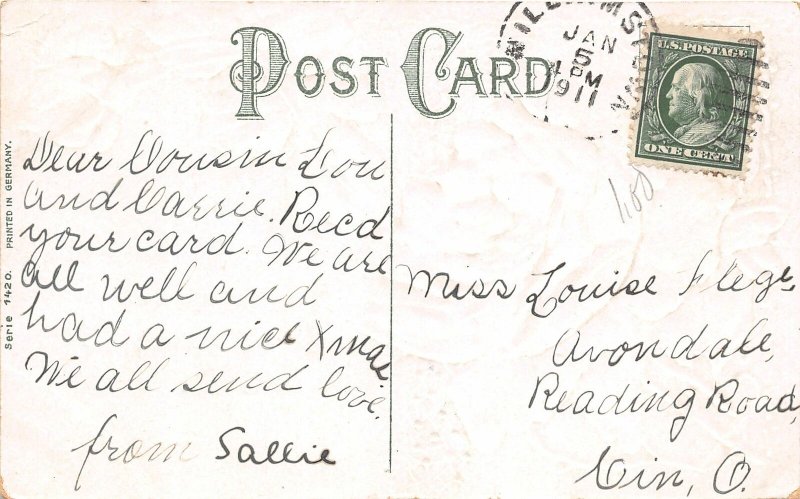 POST CARD
JAN
5
4 PM
1911
U.S. POSTAGE
ONE CENT
1.00
Serie 1420. PRINTED IN GERMANY.
Dear Cousin Lou
and Carrie. Recd
your card. We are
all well and
had a nice Xmas
We all send love.
from Sallie
Miss Louise Flege,
Avondale,
Reading Road,
Cin, O.